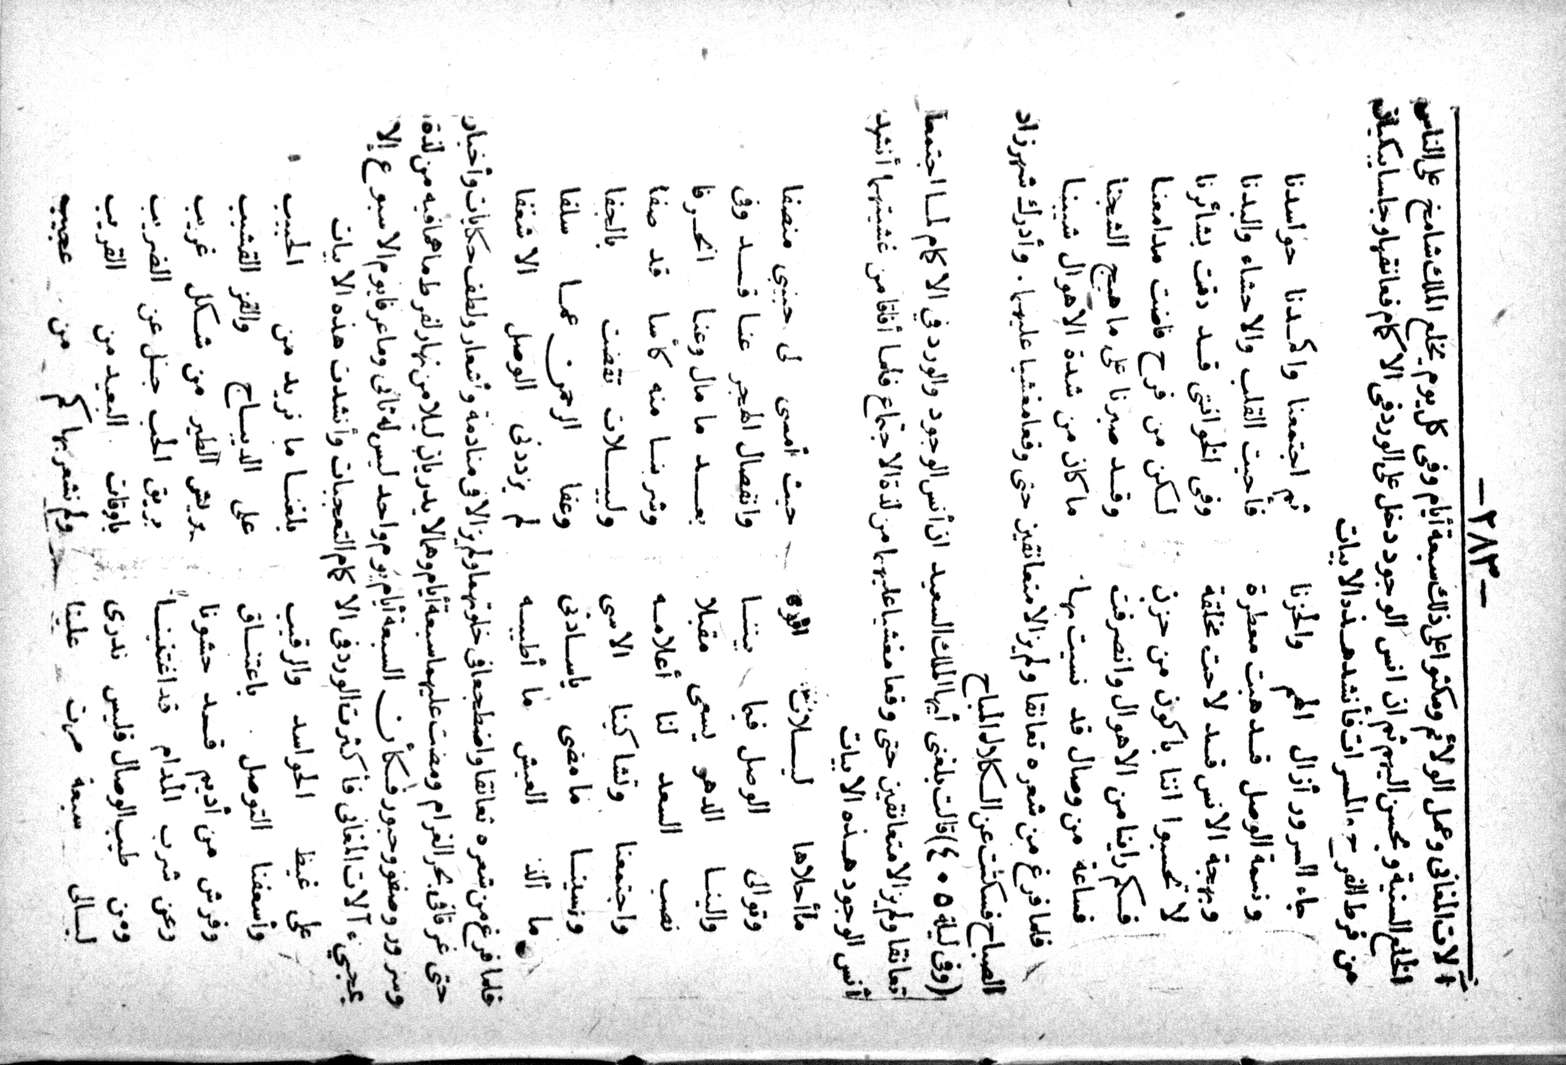 — ٢٨٣ —
آلات المغانى وعمل الولائم ومكثوا على ذلك سبعة أيام وفى كل يوم يخلع الملك شامخ على الناس
الخلع السنية ويحسن اليهم ثم ان انس الوجود دخل على الورد فى الاكمام فعانقها وجلسا يبكيان
من فرط الفرح والمسرات فأنشد هذه الابيات
جاء السرور أزال الهم والحزنا ثم اجتمعنا واكمدنا حواسدنا
ونسمة الوصل قد هبت معطرة فأحيت القلب والاحشاء والبدنا
وبهجة الانس قد لاحت مخلقة وفى الخوافق قد دقت بشائرنا
لا تحسبوا اننا باكون من حزن لكن من فرح فاضت مدامعنا
فكم رأينا من الاهوال وانصرفت وقد صبرنا على ما هيج الشجنا
فساعة من وصال قد نسيت بها ما كان من شدة الاهوال شيبنا
فلما فرغ من شعره تعانقا ولم يزالا متعانقين حتى وقعا مغشيا عليهما . وأدرك شهرزاد
الصباح فسكتت عن الكلام المباح
(وفى ليلة ٤٠٥) قالت بلغنى أيها الملك السعيد ان أنس الوجود والورد فى الاكمام لما اجتمعا
تعانقا ولم يزالا متعانقين حتى وقعا مغشيا عليهما من لذة الاجتماع فلما أفاقا من غشيتهما أنشد
أنس الوجود هذه الابيات
ما أحلاها ليلات الوفا حيث أمسى لى حبيبى منصفا
وتوالى الوصل فيما بيننا وانفصال الهجر عنا قد وفى
والينا الدهر يسعى مقبلا بعد ما مال وعنا انحرفا
نصب السعد لنا أعلامه وشربنا منه كأسا قد صفا
واجتمعنا وتشاكينا الاسى ولييلات تقضت بالجفا
ونسينا ما مضى ياسادتى وعفا الرحمن عما سلفا
ما ألذ العيش ما أطيبه لم يزدنى الوصل الا شغفا
فلما فرغ من شعره تعانقا واضطجعا فى خلوتهما ولم يزالا فى منادمة وأشعار ولطف حكايات وأخبار
حتى غرقا فى بحر الغرام ومضت عليهما سبعة أيام وهما لا يدريان ليلا من نهار لفرط ماهما فيه من لذة
وسرور وصفو وحبور فكأن السبعة أيام يوم واحد ليس له ثانى وما عرفا يوم الاسبوع إلا
بمجىء آلات المغانى فأكثرت الورد فى الاكمام التعجبات وأنشدت هذه الابيات
على غيظ الحواسد والرقيب بلغنا ما نريد من الحبيب
وأسعفنا التوصل باعتناق على الديباج والقز القشيب
وفرش من أديم قد حشونا بريش الطير من شكل غريب
وعن شرب المدام قد اغتنينا بريق الحب جل عن الضريب
ومن طيب الوصال فليس ندرى باوقات البعيد من القريب
ليالى سبعة مرت علينا ولم نشعر بها كم من عجيب